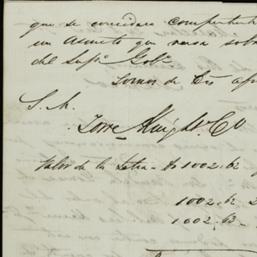 que se considere competente
un asunto que versa sobr
del Supº Gobº
Somos de Us
S. A.
Torre Knight Co
Valor de la letra - $ 1002.62
1002.62
1002.63